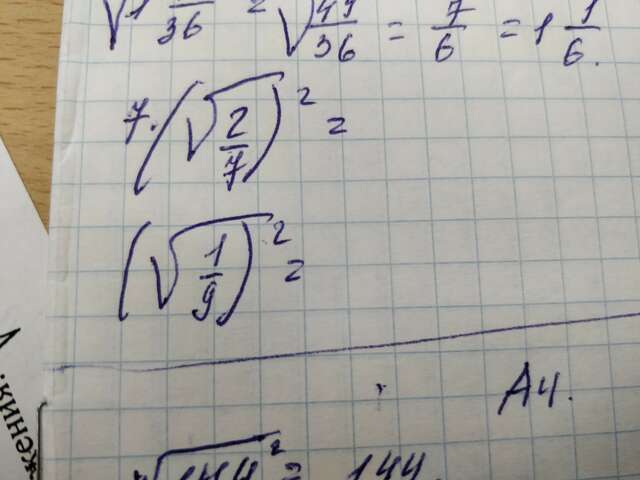 √1 /36 = √49/36 = 7/6 = 1 1/6.
7. (√2/7)² =
(√1/9)² =
А4.
√144² = 144.
жения.